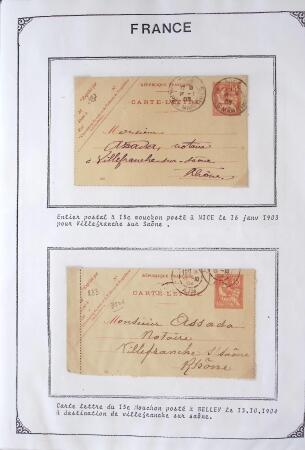 FRANCE
RÉPUBLIQUE FRANÇAISE
CARTE-LETTRE
Monsieur
Assada, notaire
à Villefranche-sur-Saône
Rhône
Entier postal à 15c mouchon posté à NICE le 16 janv 1903
pour Villefranche sur Saône .
RÉPUBLIQUE FRANÇAISE
CARTE-LETTRE
Monsieur Assada
Notaire
Villefranche S/ Saône
Rhône
Carte lettre du 15c Mouchon posté à BELLEY le 13.10.1904
à destination de villefranche sur saône.